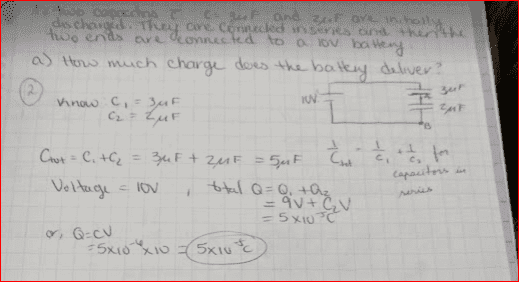 two capacitors C₁ 3μF and 2μF are initially
discharged. They are connected in series and then the
two ends are connected to a 10V battery.
a) How much charge does the battery deliver?
②
Know C₁ = 3μF
C₂ = 2μF
10V
3μF
2μF
B
Ctot = C₁ + C₂ = 3μF + 2μF = 5μF
1/Ctot = 1/C₁ + 1/C₂ for
capacitors in
series
Voltage = 10V , total Q = Q₁ + Q₂
= 9V + C₂V
= 5x10⁻⁵C
or, Q = CV
= 5x10⁻⁶x10 = 5x10⁻⁵C